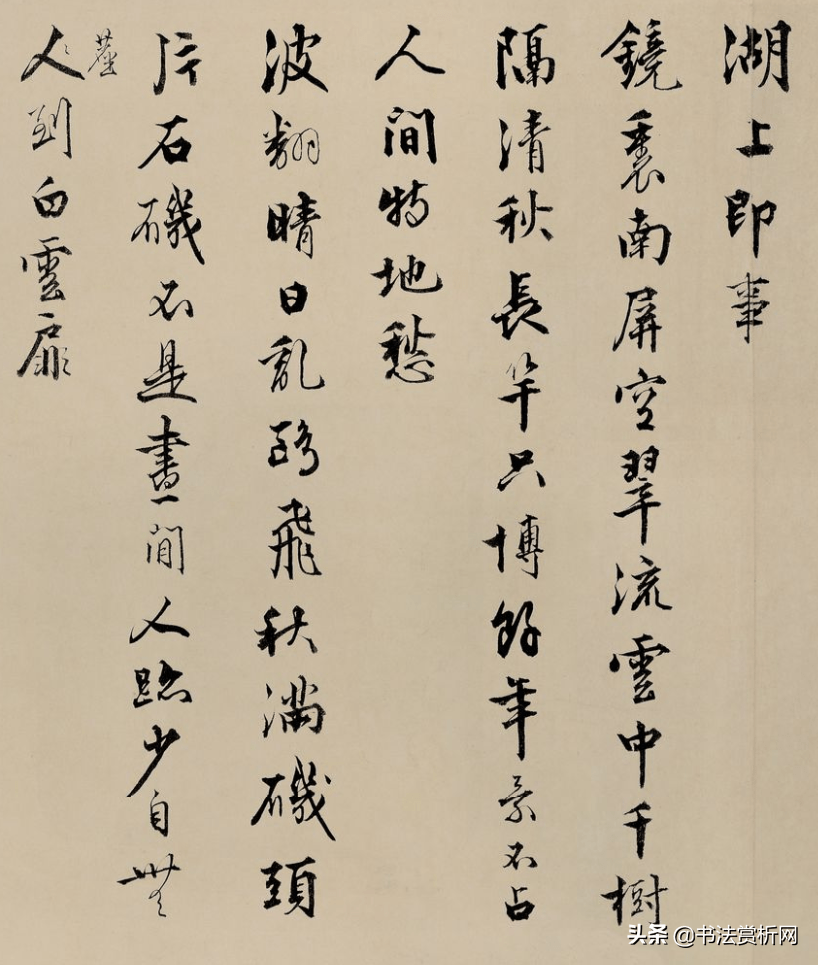 湖上即事
鏡裏南屏空翠流雲中千樹
隔清秋長竿只博餘年景不占
人間特地愁
波翻晴日乱鷗飛秋滿磯頭
片石磯不是畫間人跡少自無
塵
人到白雲扉
头条 @书法赏析网